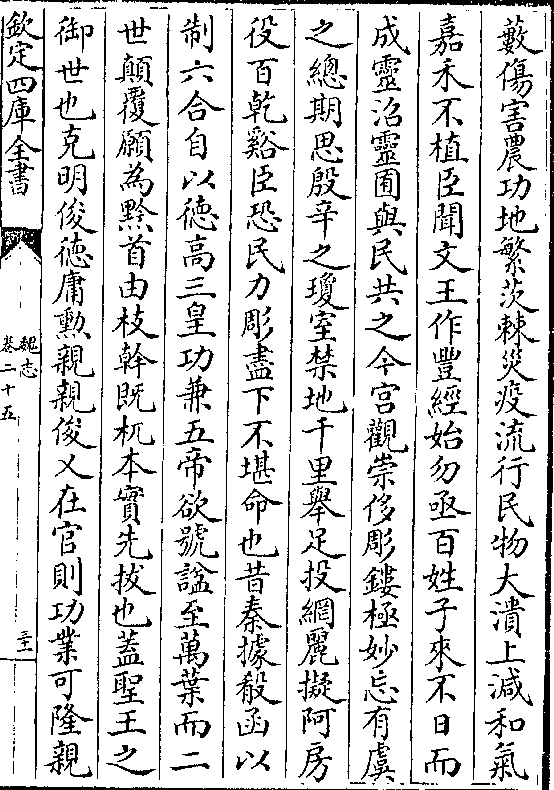 藪傷害農功地繁茨棘災疫流行民物大潰上減和氣
嘉禾不植臣聞文王作豐經始勿亟百姓子來不日而
成靈沼靈囿與民共之今宮觀崇侈彫鏤極妙忘有虞
之總期思殷辛之瓊室禁地千里舉足投網麗擬阿房
役百乾谿臣恐民力彫盡下不堪命也昔秦據殽函以
制六合自以徳高三皇功兼五帝欲號諡至萬葉而二
世顛覆願為黔首由枝幹既杌本實先拔也蓋聖王之
御世也克明俊徳庸勲親親俊乂在官則功業可隆親
欽定四庫全書
魏志
卷二十五
三十二